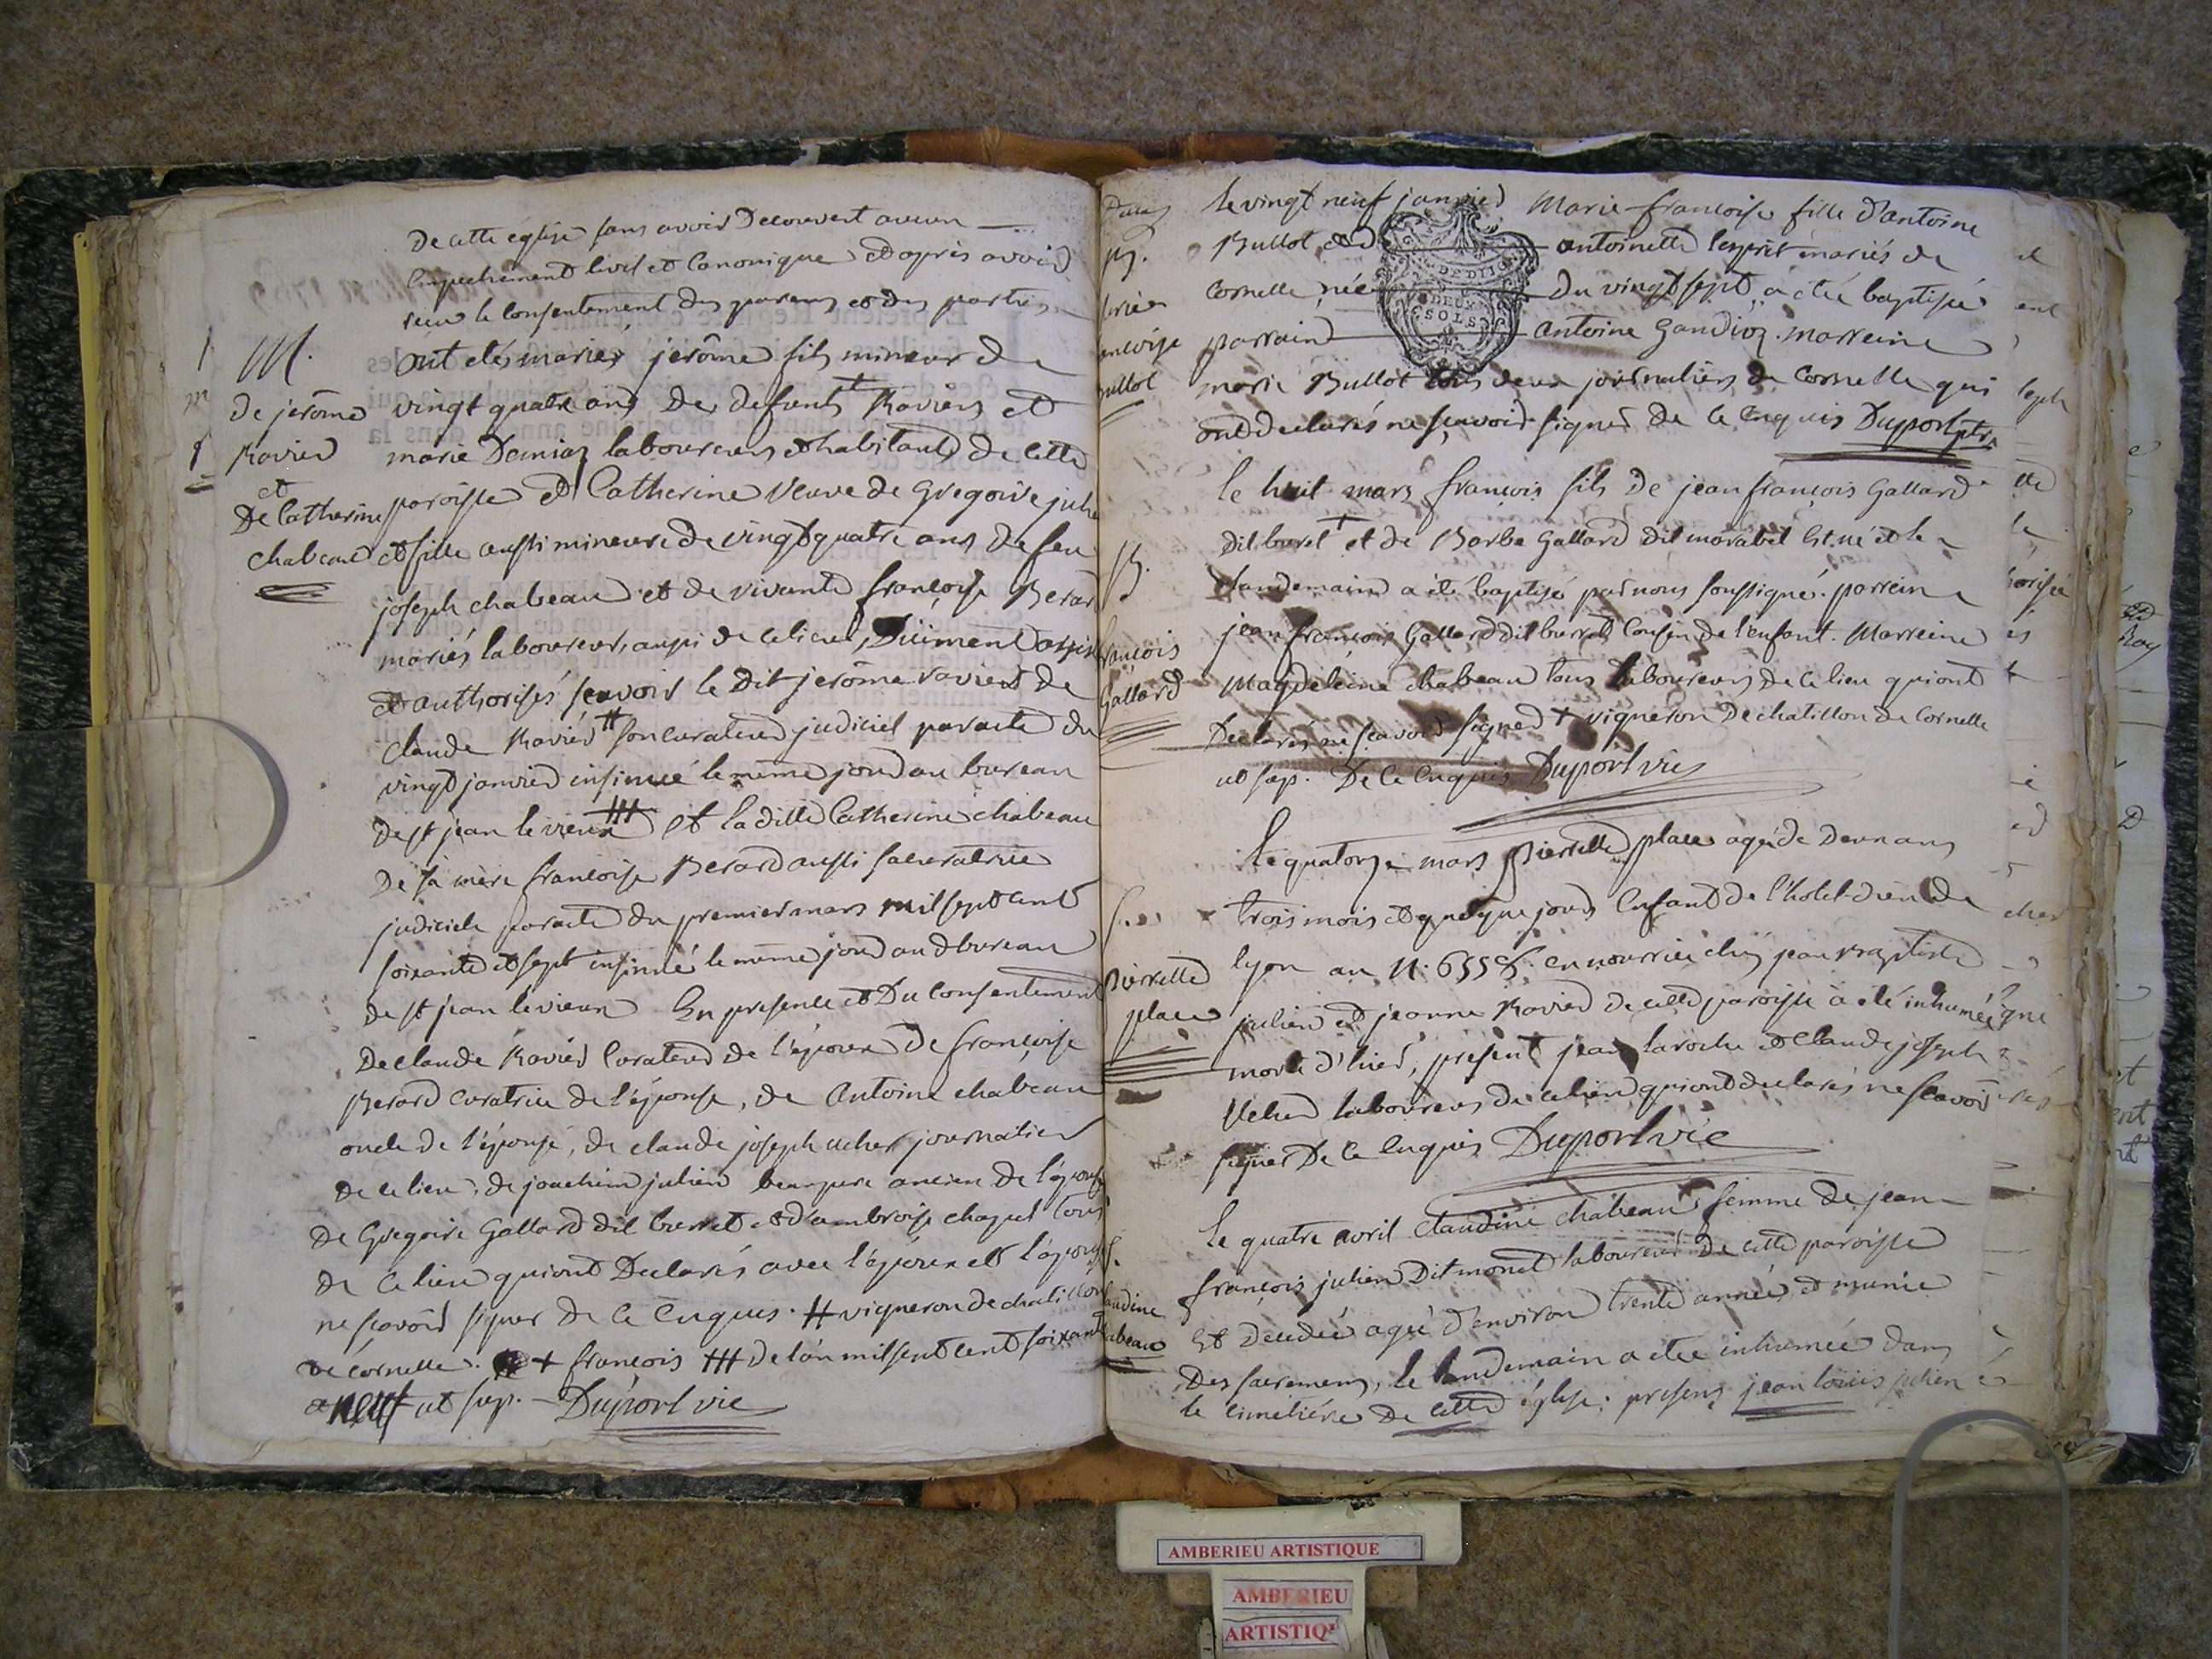 De cette eglise sans avoir Decouvert aucun
Empechement civil et Canonique et apres avoir
recu le Consentement des parens et des parties
ont etés mariés jerôme fils mineur de
vingt quatre ans De defunts + Raviers et
marie Demias laboureurs et habitants de cette
paroisse et Catherine veuve de Gregoire
et fille aussi mineure de vingt quatre ans de feu
joseph chabeau et de vivante françoise Berard
mariés laboureurs aussi de ce lieu, Düiment
et authorisés sçavoir le Dit jerôme ravier de
Claude Ravier # son curateur judiciel par acte du
vingt janvier insinué le même jour au bureau
de st jean le vieux ### et la ditte Catherine chabeau
De sa mere françoise Berard aussi sa curatrice
judiciele par acte du premier mars mil sept cent
soixante et sept insinué le même jour au bureau
de st jean le vieux En presence et Du Consentement
De Claude Ravier Curateur de l'époux De françoise
Berard curatrice de l'épouse, de Antoine chabeau
oncle de l'épouse, de claude joseph ucher journalier
de ce lieu, de joachim julien beaupere ancien de l'épouse
de Gregoire Gallard dit burret et d'ambroise chapel tous
de ce lieu qui ont Declarés avec l'époux et l'épouse
ne sçavoir signer de ce Enquis. # vigneron de chatillon
de cornelle. + françois ### de l'an mil sept cent soixante
neuf ut sup. Duport vic
M.
De jerôme
Ravier
et
De Catherine
chabeau
le vingt neuf janvier Marie françoise fille d'antoine
Bullot et antoinette lesprit mariés de
Cornelle née Du vingt sept a été baptisée
parrain antoine Gandioz. marreine
DE DIJON
DEUX
SOLS
marie Bullot tous deux journaliers de Cornelle qui
ont declarés ne sçavoir signer de ce Enquis Duport
B.
Bullot
le huit mars françois fils De jean françois Gallard
Dit buret + et de Barbe Gallard Dit morabel Est né et le
landemain a été baptisé par nous soussigné. parrein
jean françois Gallard dit burret Cousin de l'enfant. Marreine
Magdeleine chabeau tous laboureurs De ce lieu qui ont
Declarés ne sçavoir signer + vigneron De chatillon de Cornelle
ut sup. De ce Enquis Duport vic
B.
françois
Gallard
le quatorze mars pierrette place agée de Deux ans
trois mois et quelque jours Enfant de l'hotel-dieu de
lyon au N. en nourrice chez jean Baptiste
julien et jeanne Ravier de cette paroisse a été inhumée
morte d'hier, present jean laroche et Claude joseph
Ucher laboureurs de ce lieu qui ont declarés ne sçavoir
signer De ce Enquis Duport vic
Pierrette
place
le quatre avril Claudine chabeau femme de jean
françois julien Dit monet laboureur De cette paroisse
Est decedée agée d'environ trente années et munie
Des sacremens, le landemain a été inhumée dans
le cimetière De cette église; presens jean louis julien
S.
AMBERIEU ARTISTIQUE
AMBERIEU
ARTISTIQ